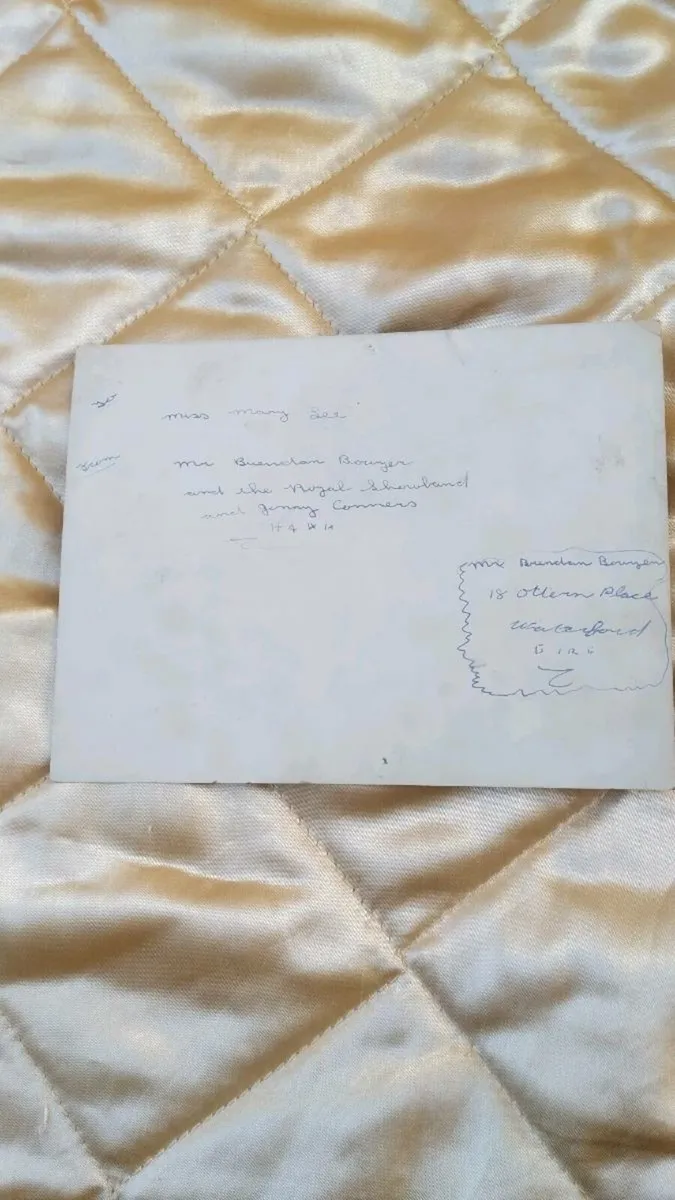 to
Miss Mary Lee
from
Mr Brendan Bowyer
and the Royal Showband
and Jenny Conners
Mr Brendan Bowyer
18 Ottern Place
Waterford
EIRE